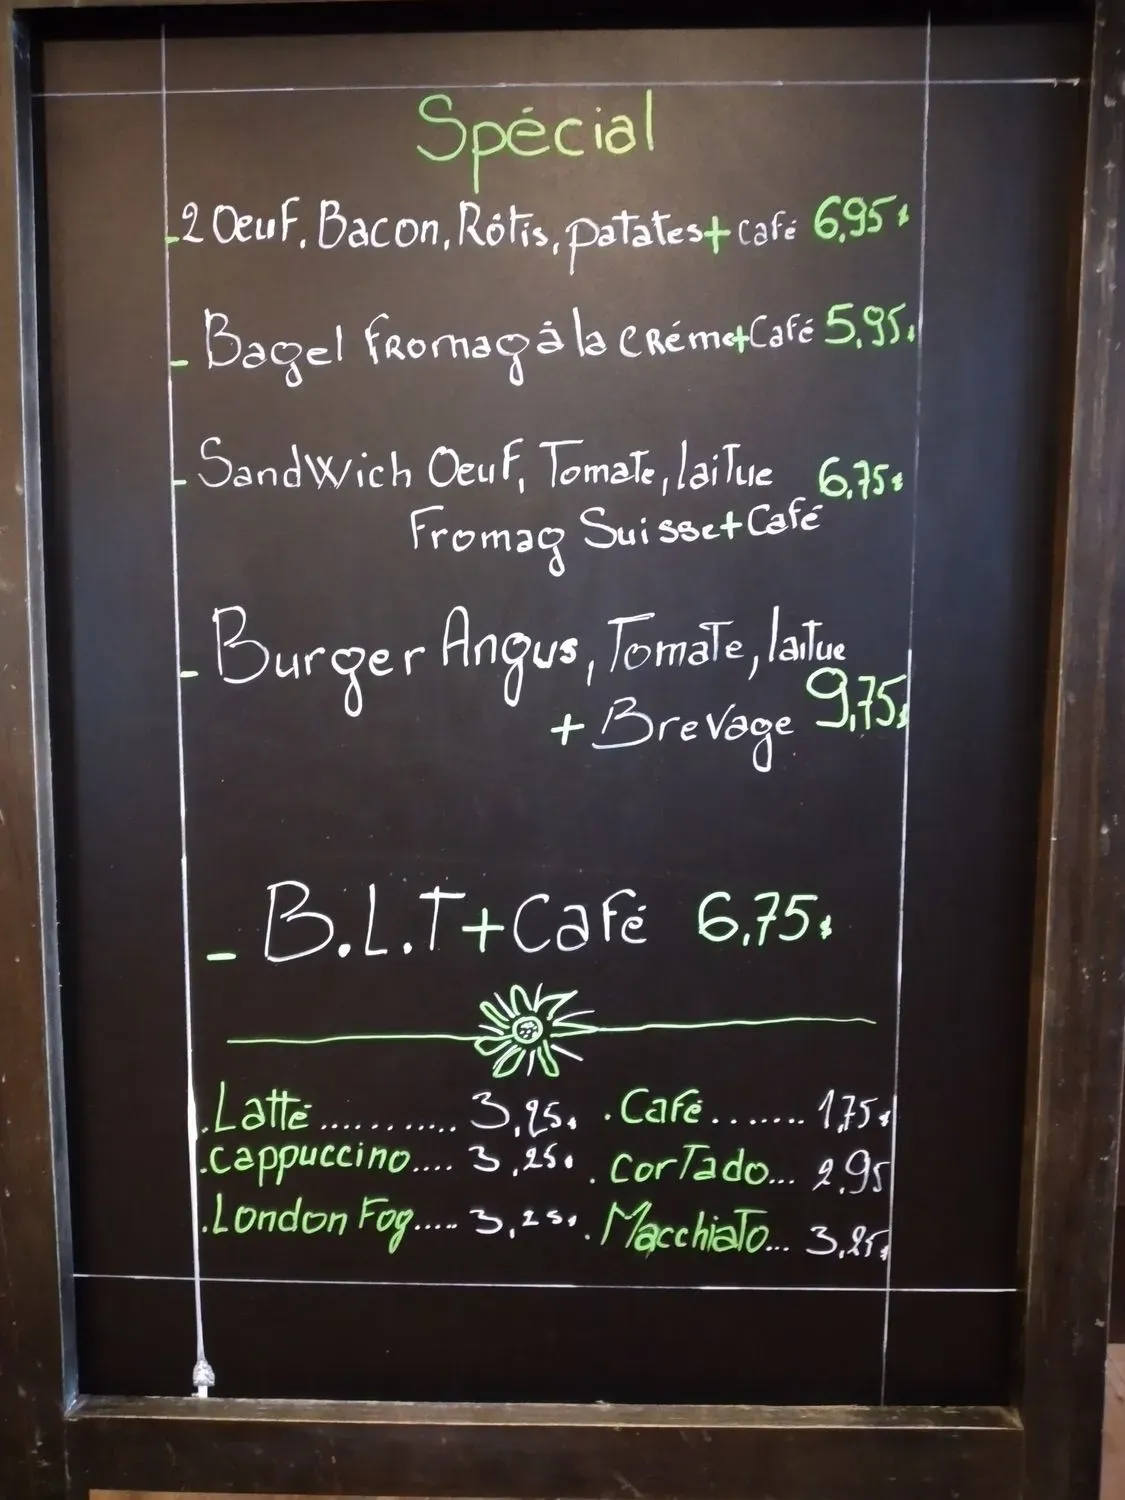 Spécial
- 2 Oeuf, Bacon, Rôtis, patates + café 6,95$
- Bagel Fromag à la Créme + Café 5,95$
- Sandwich Oeuf, Tomate, laitue 6,75$
Fromag Suisse + Café
- Burger Angus, Tomate, laitue
+ Brevage 9,75$
- B.L.T + Café 6,75$
. Latté ........... 3,25$ . Café ....... 1,75$
. cappuccino.... 3,25$ . corTado... 2,95
. London Fog..... 3,25$ . Macchiato... 3,25$